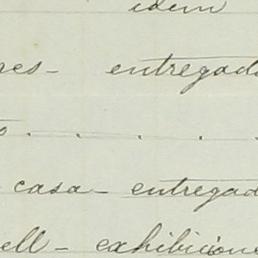 idem
res- entregad
o . . . .
casa- entregad
ell- exhibicione